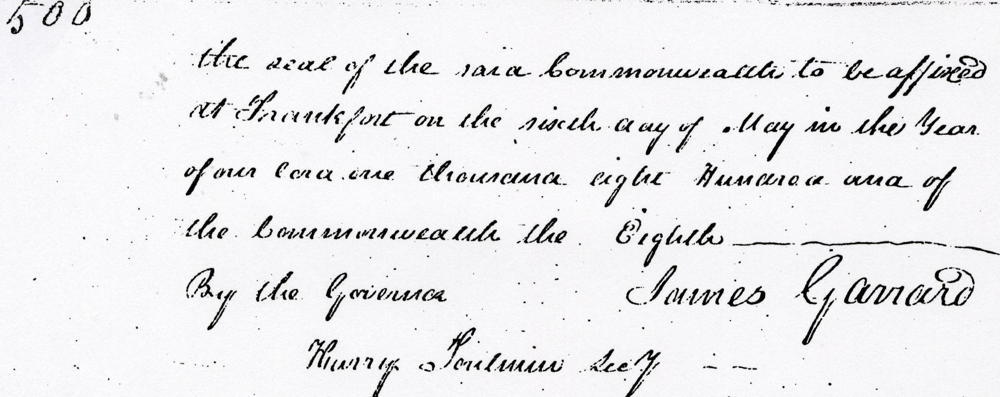 500
the seal of the said Commonwealth to be affixed
at Frankfort on the sixth day of May in the Year
of our Lord one thousand eight Hundred and of
the Commonwealth the Eighth
By the Governor James Garrard
Harry Toulmin Secy